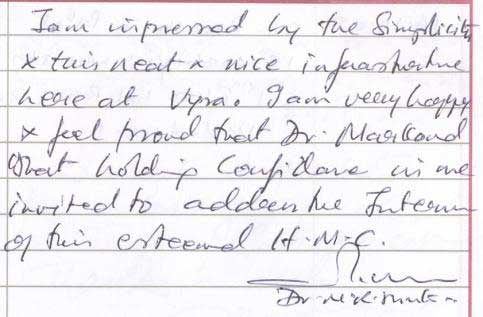 I am impressed by the Simplicity
& this neat & nice infrastructure
here at Vyra. I am very happy
& feel proud that Dr. Markand
Bhat holding Confidance in me
invited to address the Intern
of this esteemed H.M.C.
Dr.